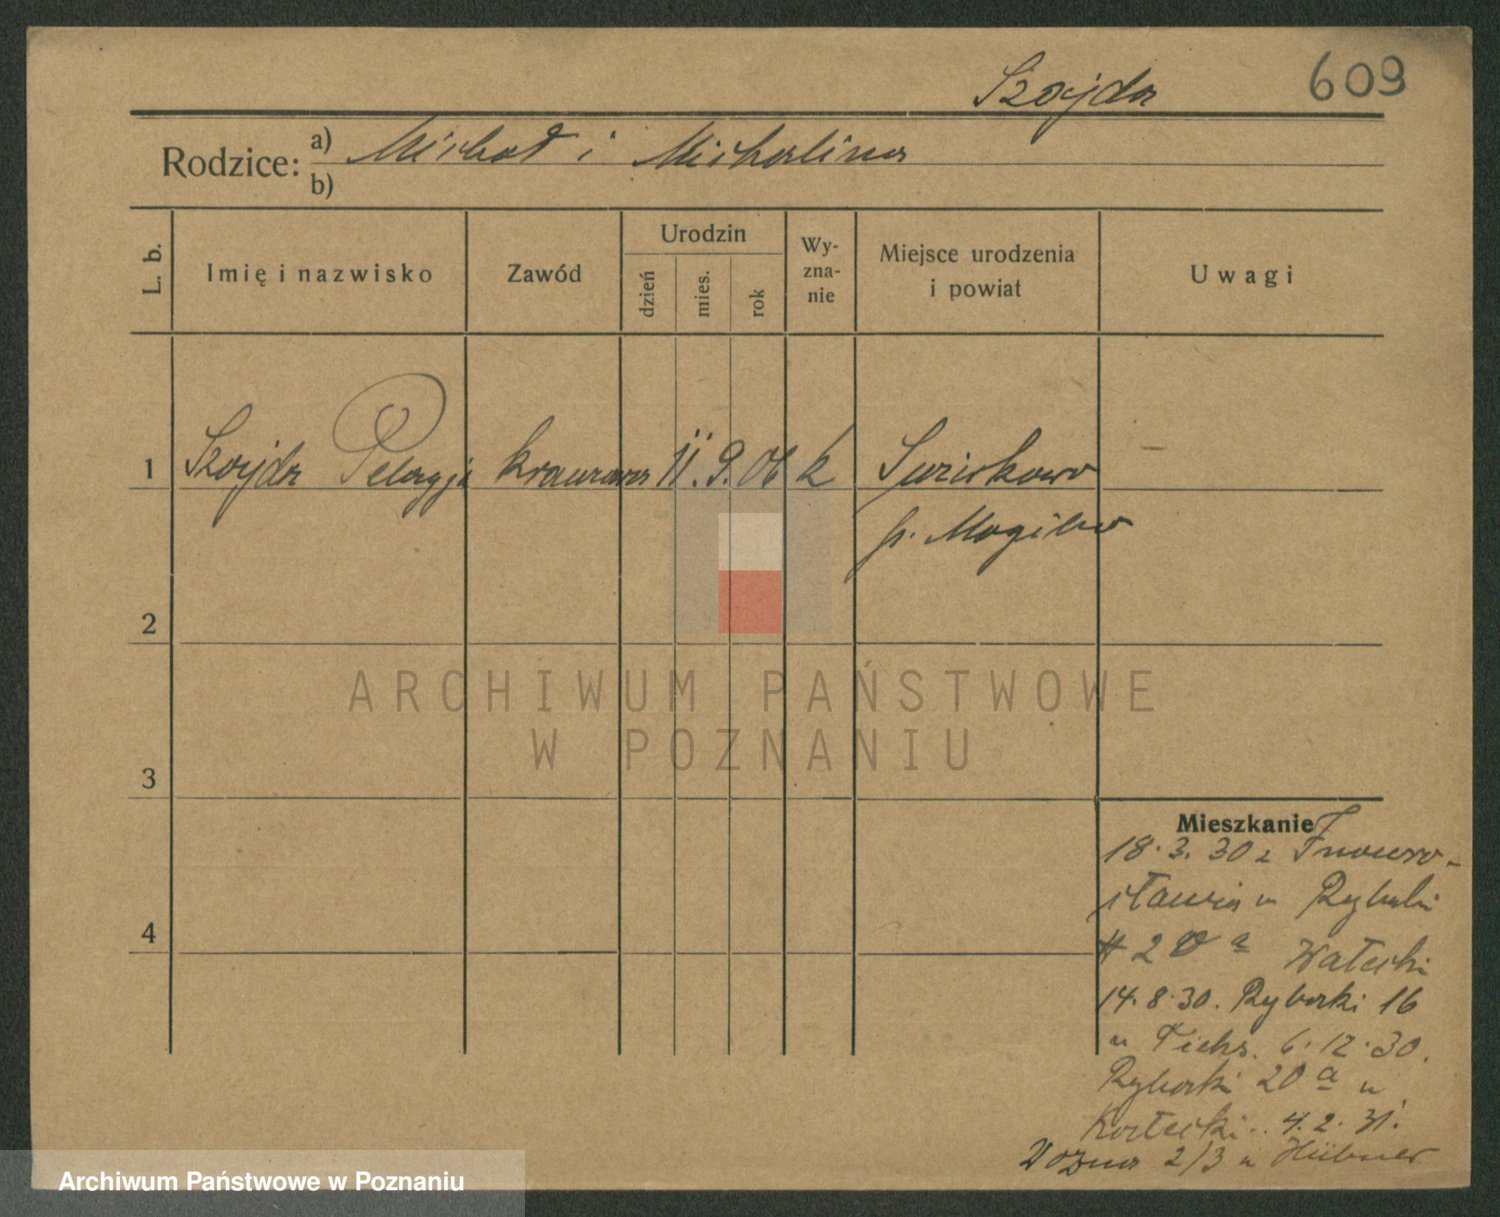 Szajda 609
Rodzice: a) Michał i Michalina
b)
L. b. Imię i nazwisko Zawód Urodzin dzień mies. rok Wy-zna-nie Miejsce urodzenia i powiat Uwagi
1 Szajda Pelagja krawcowa 11. 9. 06 k
p. Mogilno
2
3
4
ARCHIWUM PAŃSTWOWE
W POZNANIU
Mieszkanie
18. 3. 30 z Inowro-
cławia u Rybaki
20 a
14. 8. 30. Rybaki 16
u 6. 12. 30.
Rybaki 20 a u
4. 2. 31.
Woźna 2/3 u Hübner
Archiwum Państwowe w Poznaniu